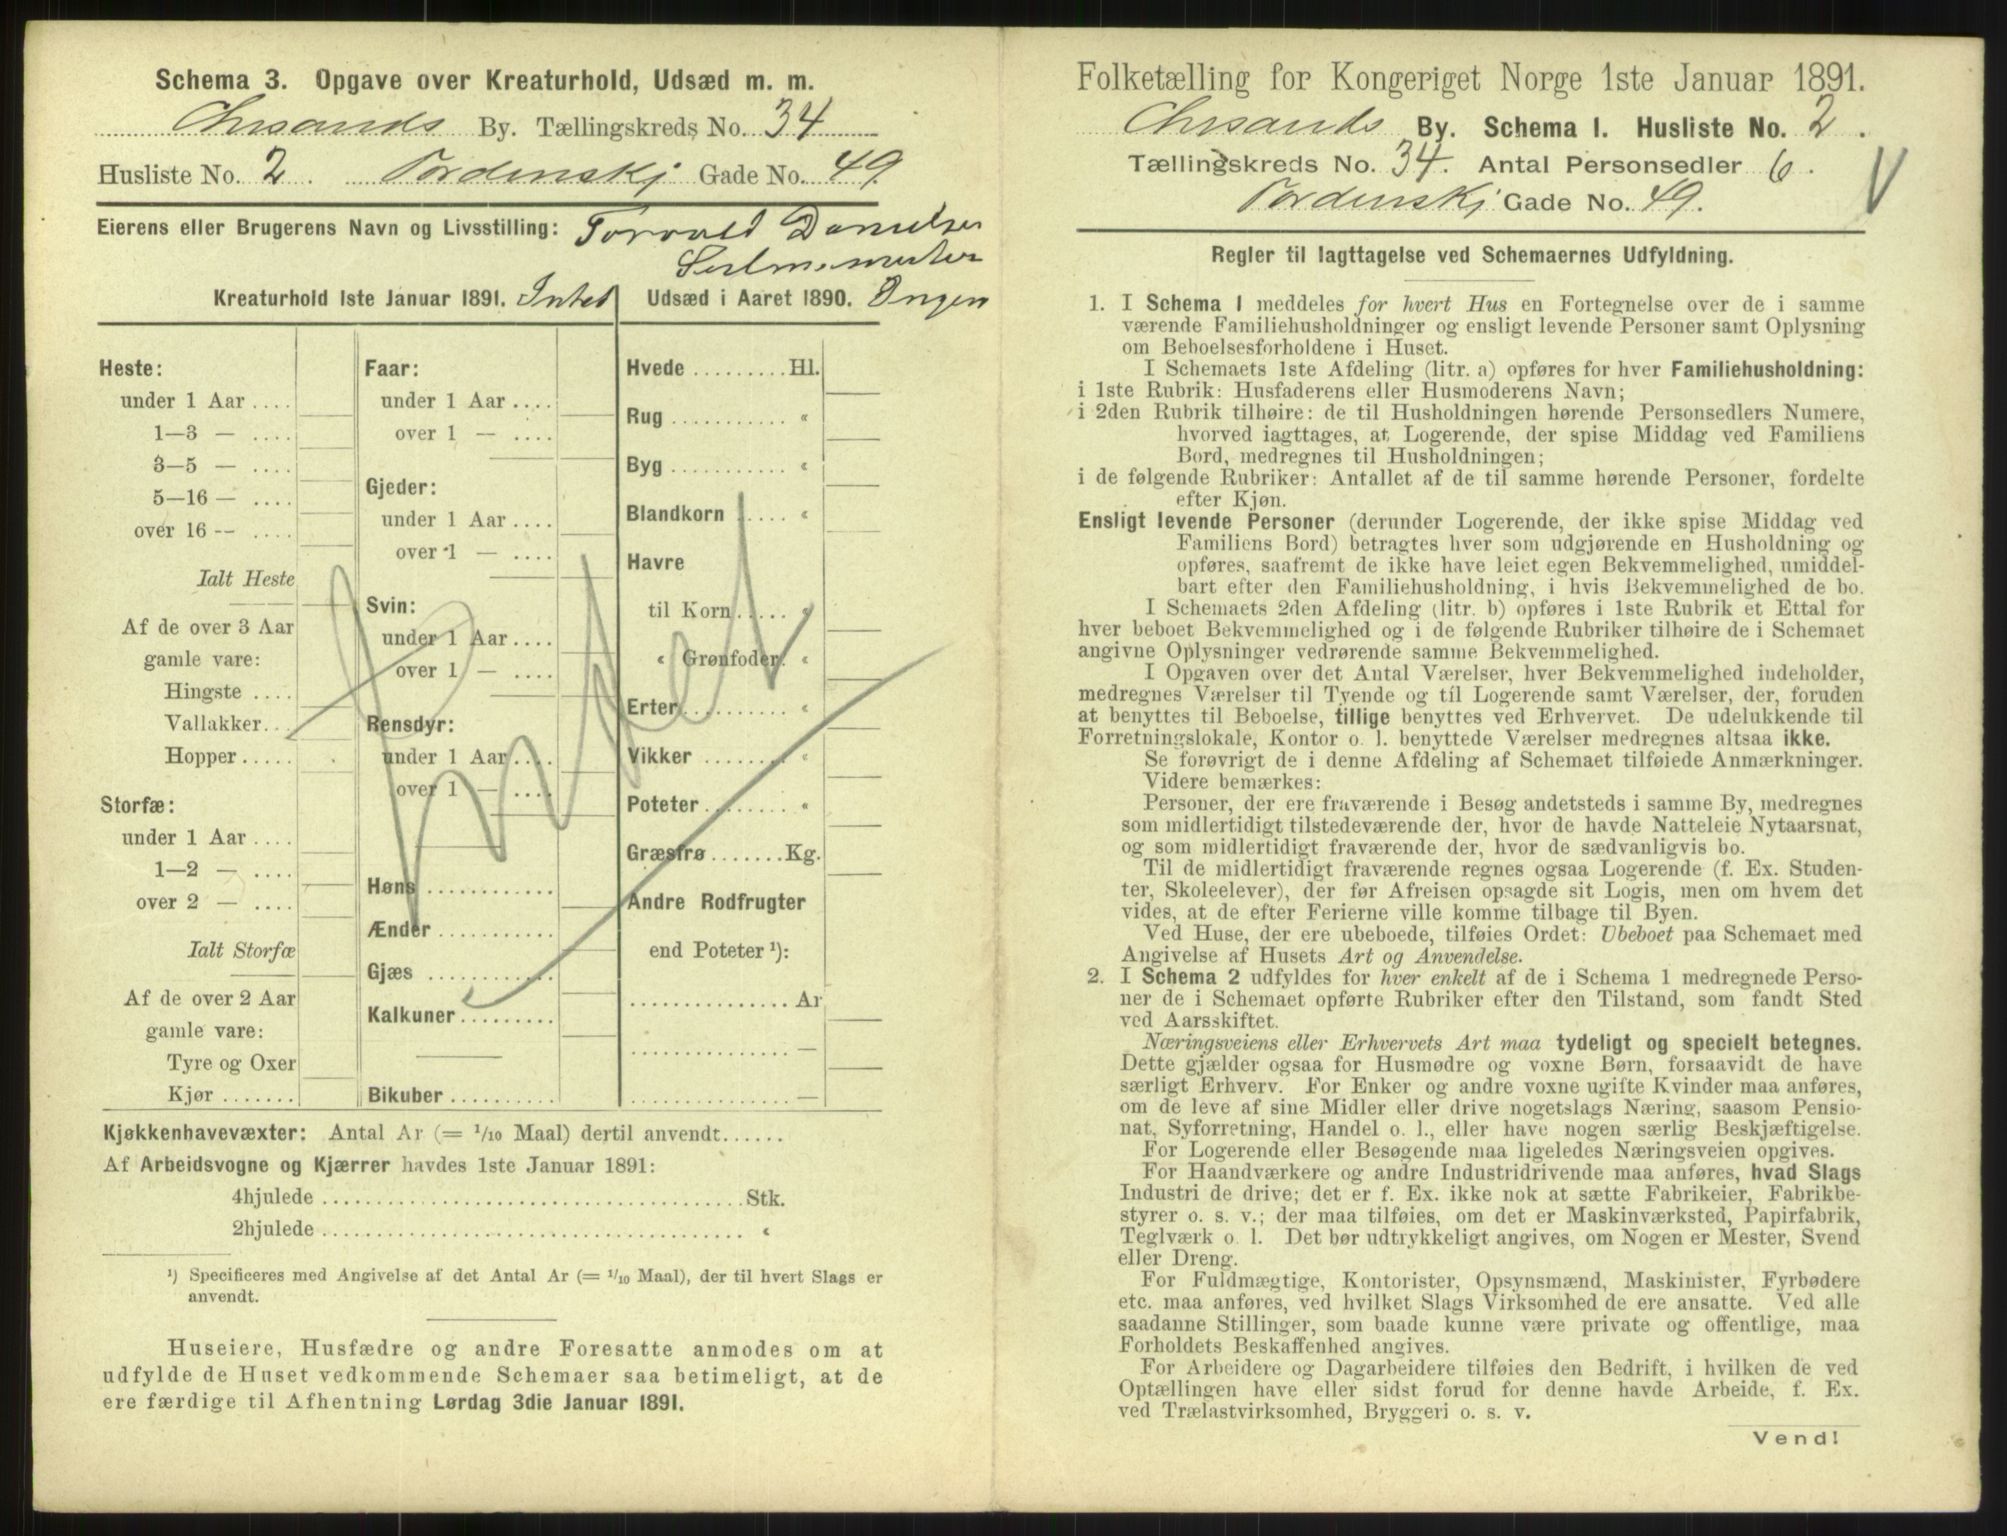 Schema 3. Opgave over Kreaturhold, Udsæd m. m.
Chrsands By. Tællingskreds No. 34
Husliste No. 2. Tordenskj Gade No. 49.
Eierens eller Brugerens Navn og Livsstilling: Torvald Danielsen
Seilmamester
Kreaturhold 1ste Januar 1891. Intet
Udsæd i Aaret 1890. Ingen
Heste:
under 1 Aar ....
1—3 — ....
3—5 — ....
5—16 — ....
over 16 — ....
Ialt Heste
Af de over 3 Aar
gamle vare:
Hingste ....
Vallakker...
Hopper.....
Storfæ:
under 1 Aar ....
1—2 — ....
over 2 — ....
Ialt Storfæ
Af de over 2 Aar
gamle vare:
Tyre og Oxer
Kjør .......
Faar:
under 1 Aar ....
over 1 — ....
Gjeder:
under 1 Aar ....
over 1 — ....
Svin:
under 1 Aar ....
over 1 — ....
Rensdyr:
under 1 Aar....
over 1 — ....
Høns ............
Ænder ...........
Gjæs ............
Kalkuner.........
Bikuber ..........
Hvede ......... Hl.
Rug ........... «
Byg ........... «
Blandkorn ..... «
Havre
til Korn ..... «
« Grønfoder. «
Erter .......... «
Vikker ........ «
Poteter ........ «
Græsfrø ....... Kg.
Andre Rodfrugter
end Poteter ¹):
............... Ar
............... —
............... —
Kjøkkenhavevæxter: Antal Ar (= 1/10 Maal) dertil anvendt......
Af Arbeidsvogne og Kjærrer havdes 1ste Januar 1891:
4hjulede ........................................ Stk.
2hjulede ........................................ «
¹) Specificeres med Angivelse af det Antal Ar (= 1/10 Maal), der til hvert Slags er
anvendt.
Huseiere, Husfædre og andre Foresatte anmodes om at
udfylde de Huset vedkommende Schemaer saa betimeligt, at de
ere færdige til Afhentning Lørdag 3die Januar 1891.
Folketælling for Kongeriget Norge 1ste Januar 1891.
Chrsands By. Schema I. Husliste No. 2.
Tællingskreds No. 34. Antal Personsedler 6.
Tordenskj Gade No. 49.
Regler til Iagttagelse ved Schemaernes Udfyldning.
1. I Schema 1 meddeles for hvert Hus en Fortegnelse over de i samme
værende Familiehusholdninger og ensligt levende Personer samt Oplysning
om Beboelsesforholdene i Huset.
I Schemaets 1ste Afdeling (litr. a) opføres for hver Familiehusholdning:
i 1ste Rubrik: Husfaderens eller Husmoderens Navn;
i 2den Rubrik tilhøire: de til Husholdningen hørende Personsedlers Numere,
hvorved iagttages, at Logerende, der spise Middag ved Familiens
Bord, medregnes til Husholdningen;
i de følgende Rubriker: Antallet af de til samme hørende Personer, fordelte
efter Kjøn.
Ensligt levende Personer (derunder Logerende, der ikke spise Middag ved
Familiens Bord) betragtes hver som udgjørende en Husholdning og
opføres, saafremt de ikke have leiet egen Bekvemmelighed, umiddel-
bart efter den Familiehusholdning, i hvis Bekvemmelighed de bo.
I Schemaets 2den Afdeling (litr. b) opføres i 1ste Rubrik et Ettal for
hver beboet Bekvemmelighed og i de følgende Rubriker tilhøire de i Schemaet
angivne Oplysninger vedrørende samme Bekvemmelighed.
I Opgaven over det Antal Værelser, hver Bekvemmelighed indeholder,
medregnes Værelser til Tyende og til Logerende samt Værelser, der, foruden
at benyttes til Beboelse, tillige benyttes ved Erhvervet. De udelukkende til
Forretningslokale, Kontor o. l. benyttede Værelser medregnes altsaa ikke.
Se forøvrigt de i denne Afdeling af Schemaet tilføiede Anmærkninger.
Videre bemærkes:
Personer, der ere fraværende i Besøg andetsteds i samme By, medregnes
som midlertidigt tilstedeværende der, hvor de havde Natteleie Nytaarsnat,
og som midlertidigt fraværende der, hvor de sædvanligvis bo.
Til de midlertidigt fraværende regnes ogsaa Logerende (f. Ex. Studen-
ter, Skoleelever), der før Afreisen opsagde sit Logis, men om hvem det
vides, at de efter Ferierne ville komme tilbage til Byen.
Ved Huse, der ere ubeboede, tilføies Ordet: Ubeboet paa Schemaet med
Angivelse af Husets Art og Anvendelse.
2. I Schema 2 udfyldes for hver enkelt af de i Schema 1 medregnede Perso-
ner de i Schemaet opførte Rubriker efter den Tilstand, som fandt Sted
ved Aarsskiftet.
Næringsveiens eller Erhvervets Art maa tydeligt og specielt betegnes.
Dette gjælder ogsaa for Husmødre og voxne Børn, forsaavidt de have
særligt Erhverv. For Enker og andre voxne ugifte Kvinder maa anføres,
om de leve af sine Midler eller drive nogetslags Næring, saasom Pensio-
nat, Syforretning, Handel o. l., eller have nogen særlig Beskjæftigelse.
For Logerende eller Besøgende maa ligeledes Næringsveien opgives.
For Haandværkere og andre Industridrivende maa anføres, hvad Slags
Industri de drive; det er f. Ex. ikke nok at sætte Fabrikeier, Fabrikbe-
styrer o. s. v.; der maa tilføies, om det er Maskinværksted, Papirfabrik,
Teglværk o. l. Det bør udtrykkeligt angives, om Nogen er Mester, Svend
eller Dreng.
For Fuldmægtige, Kontorister, Opsynsmænd, Maskinister, Fyrbødere
etc. maa anføres, ved hvilket Slags Virksomhed de ere ansatte. Ved alle
saadanne Stillinger, som baade kunne være private og offentlige, maa
Forholdets Beskaffenhed angives.
For Arbeidere og Dagarbeidere tilføies den Bedrift, i hvilken de ved
Optællingen have eller sidst forud for denne havde Arbeide, f. Ex.
ved Trælastvirksomhed, Bryggeri o. s. v.
Vend!